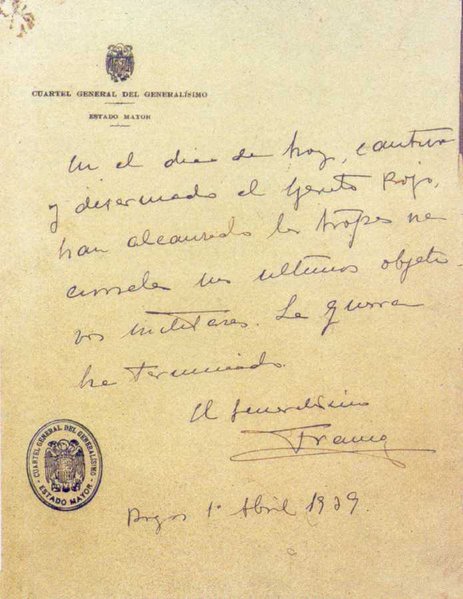 CUARTEL GENERAL DEL GENERALÍSIMO
ESTADO MAYOR
En el dia de hoy, cautivo
y desarmado el Ejercito Rojo,
han alcanzado las tropas na-
cionales sus ultimos objeti-
vos militares. La guerra
ha terminado.
El Generalisimo
Franco
Burgos 1º Abril 1939.
CUARTEL GENERAL DEL GENERALÍSIMO
ESTADO MAYOR